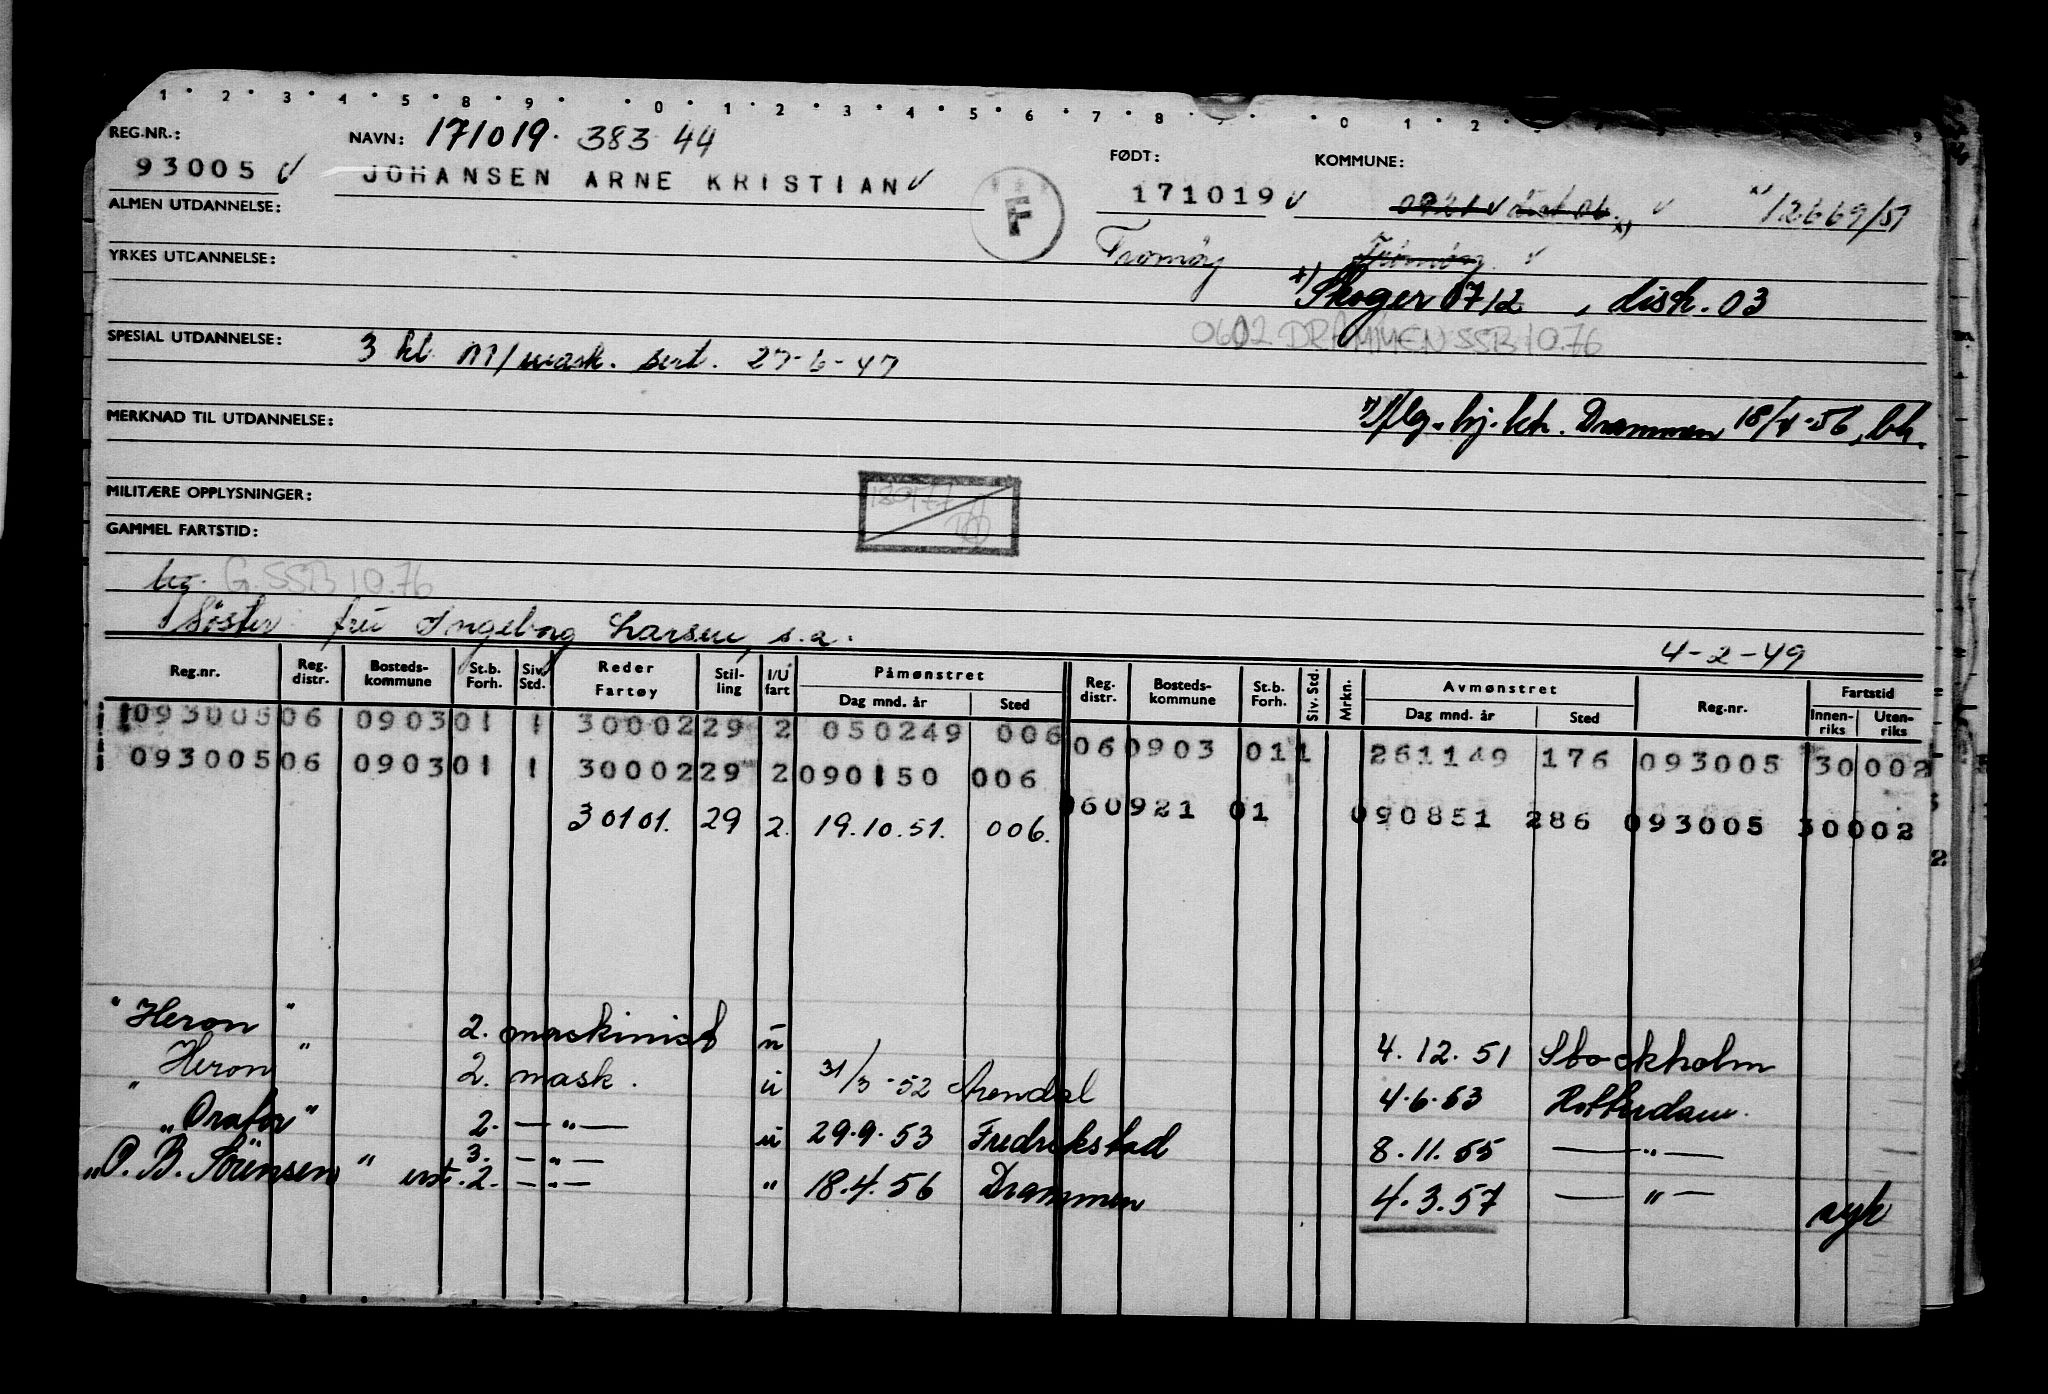 1 2 3 4 5 8 9 0 1 2 3 4 5 6 7 8 0 1 2
REG.NR.: NAVN: 171019. 383 44 FØDT: KOMMUNE:
93005 v JOHANSEN ARNE KRISTIAN v F 171019 v 0921 v dist 06. x) v x) 12669/51
ALMEN UTDANNELSE:
Tromöy Tromöy v
YRKES UTDANNELSE:
x) Skoger 0712, distr. 03
0602 DRAMMEN SSB 10.76
SPESIAL UTDANNELSE: 3 kl M/mask. sert. 27-6-47
Drammen 18/4-56
MERKNAD TIL UTDANNELSE:
MILITÆRE OPPLYSNINGER:
GAMMEL FARTSTID:
G. SSB 10.76
Söster: fru Ingeborg Larsen, s.a.
4-2-49
Reg.nr. Reg. distr. Bosteds-kommune St.b. Forh. Siv. Std. Reder Fartøy Stil-ling I/U fart Påmønstret Dag mnd. år Sted Reg. distr. Bosteds-kommune St.b. Forh. Siv. Std. Mrkn. Avmønstret Dag mnd. år Sted Reg.nr. Fartstid Innen-riks Uten-riks
093005 06 0903 01 1 30002 29 2 050249 006 06 0903 01 1 261149 176 093005 30002
093005 06 0903 01 1 30002 29 2 090150 006 06 0921 01 090851 286 093005 30002
30101. 29 2. 19.10.51. 006.
2
"Heron" 2. maskinist u 4.12.51 Stockholm
"Heron" 2. mask. u 31/3-52 Arendal 4.6.53 Rotterdam.
"Orator" 2. —"— u 29.9.53 Fredrikstad 8.11.55 —"—
3. —"—
"O. B. Sörensen" erst. 2. —"— " 18.4.56 Drammen 4.3.57 —"— syk